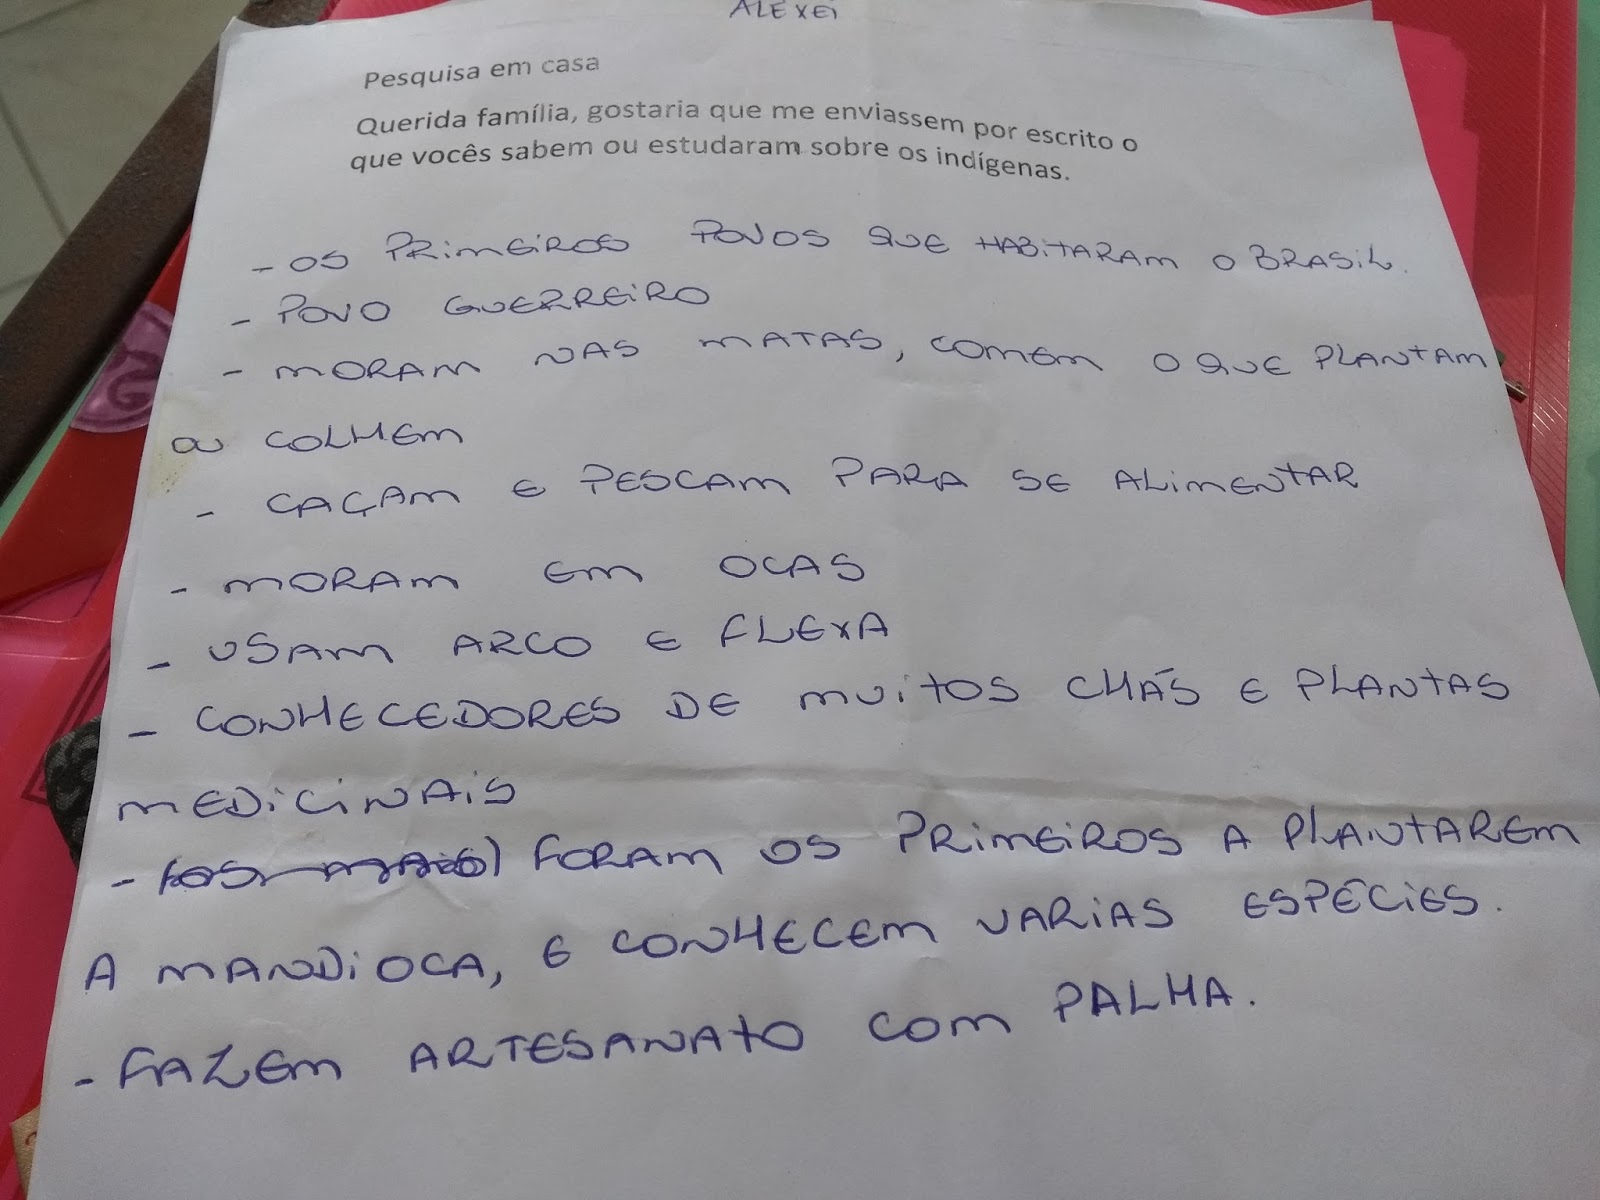 ALEXEI
Pesquisa em casa
Querida família, gostaria que me enviassem por escrito o
que vocês sabem ou estudaram sobre os indígenas.
- OS PRIMEIROS POVOS QUE HABITARAM O BRASIL.
- POVO GUERREIRO
- MORAM NAS MATAS, COMEM O QUE PLANTAM
OU COLHEM
- CAÇAM E PESCAM PARA SE ALIMENTAR
- MORAM EM OCAS
- USAM ARCO E FLEXA
- CONHECEDORES DE MUITOS CHÁS E PLANTAS
MEDICINAIS
- FORAM OS PRIMEIROS A PLANTAREM
A MANDIOCA, E CONHECEM VARIAS ESPÉCIES.
- FAZEM ARTESANATO COM PALHA.